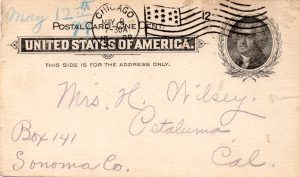 May 12th
CHICAGO
MAY 8
POSTAL CARD-ONE CENT
12
UNITED STATES OF AMERICA.
THIS SIDE IS FOR THE ADDRESS ONLY.
Mrs. H. Wilsey.
Petaluma
Box 141
Sonoma Co. Cal.